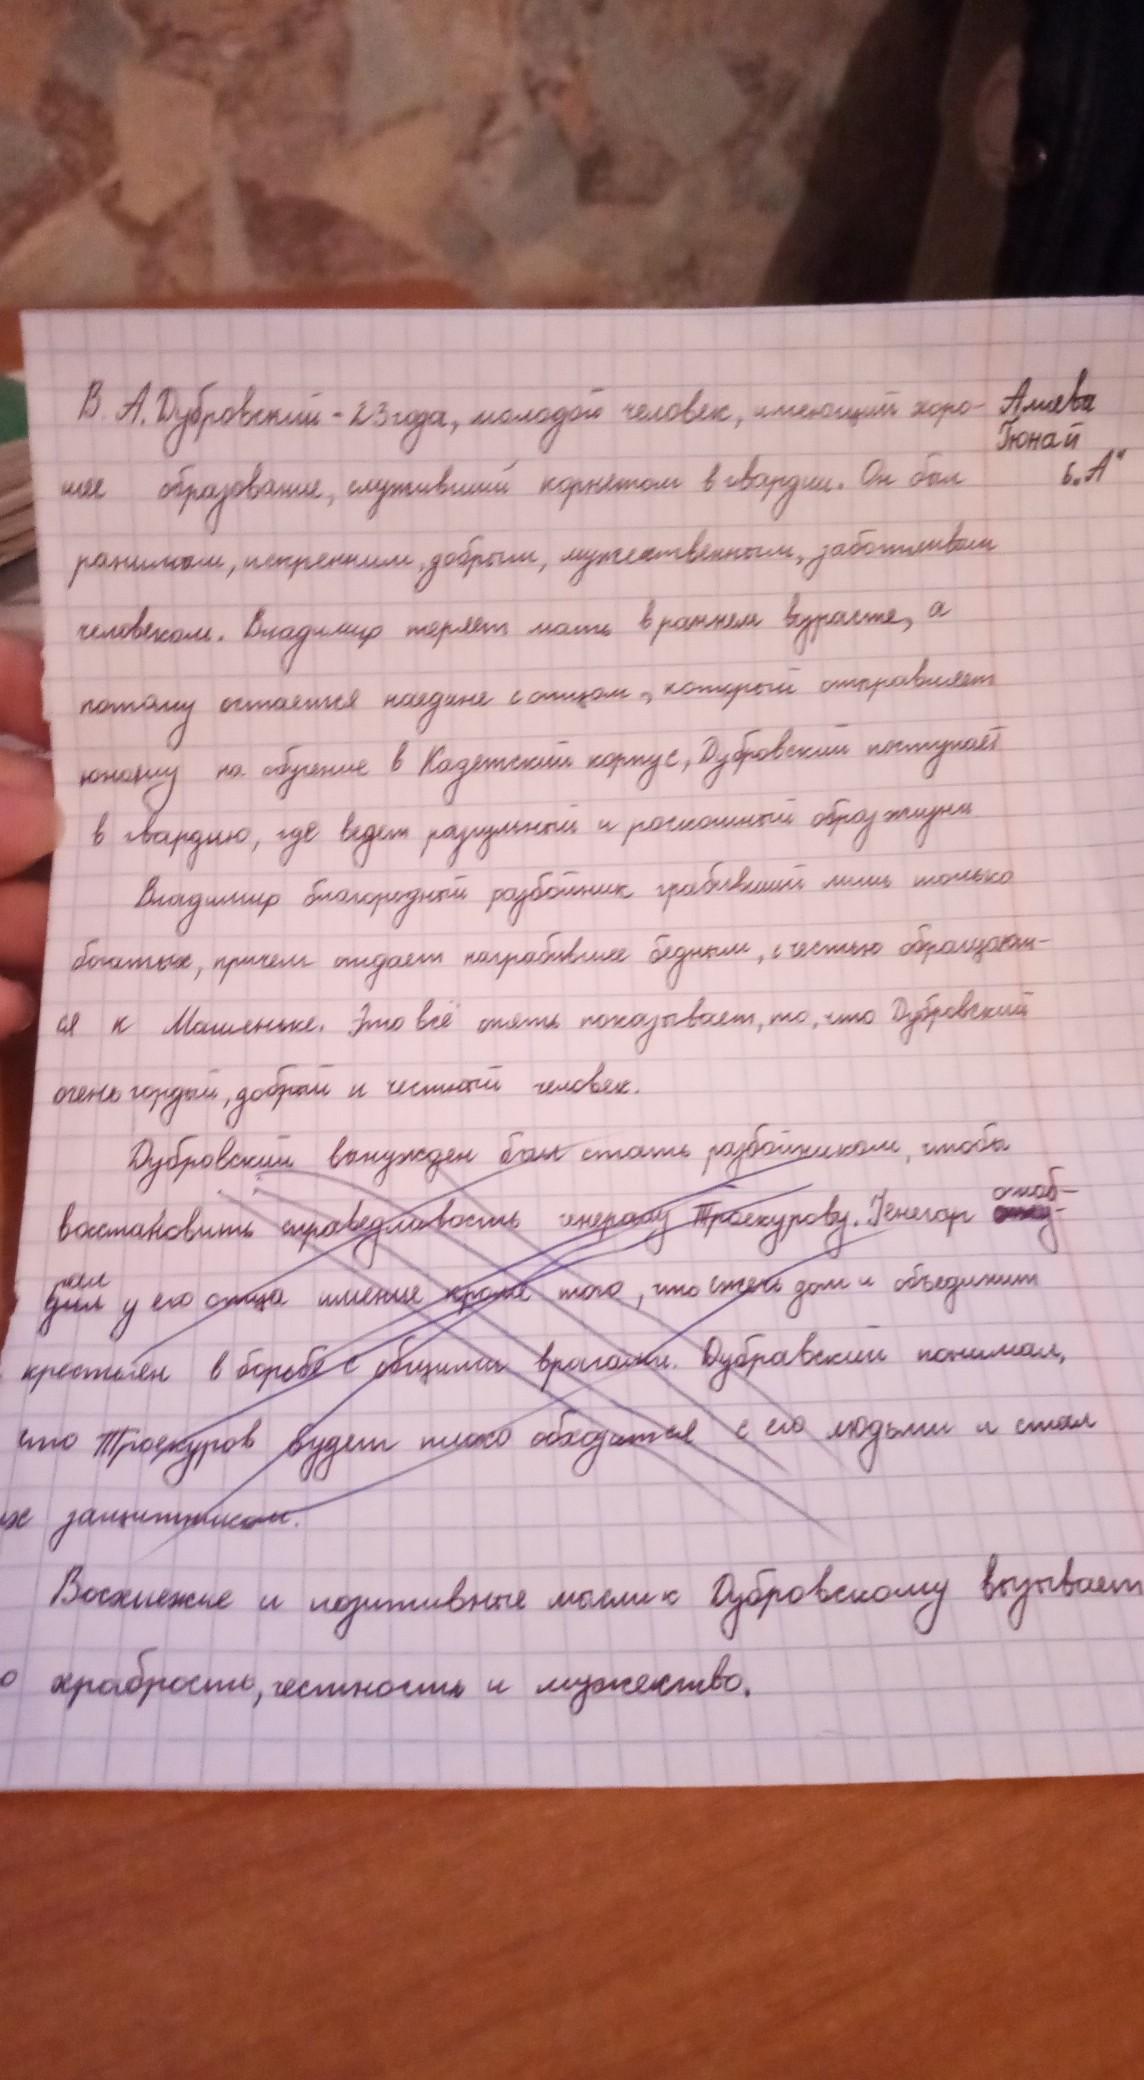 В. А. Дубровский - 23 года, молодой человек, имеющий хоро-
Алиева
Гюнай
6 „А"
шее образование, служивший корнетом в гвардии. Он был
ранимым, искренним, добрым, мужественным, заботливым
человеком. Владимир теряет мать в раннем возрасте, а
потому остается наедине с отцом, который отправляет
юношу на обучение в Кадетский корпус, Дубровский поступает
в гвардию, где ведет разгульный и роскошный образ жизни
Владимир благородный разбойник грабивший лишь только
богатых, причем отдает награбившее бедным, с честью обращают-
ся к Машеньке. Это всё опять показывает, то, что Дубровский
очень гордый, добрый и честный человек.
Дубровский вынужден был стать разбойником, чтобы
восстановить справедливость генералу Троекурову. Генерал отоб-
рал у его отца имение кроме того, что сжечь дом и объединит
крестьян в борьбе с общими врагами. Дубравский понимал,
что Троекуров будет плохо обходится с его людьми и стал
их защитником.
и позитивные мысли к Дубровскому вызывает
о храбрость, честность и мужество.